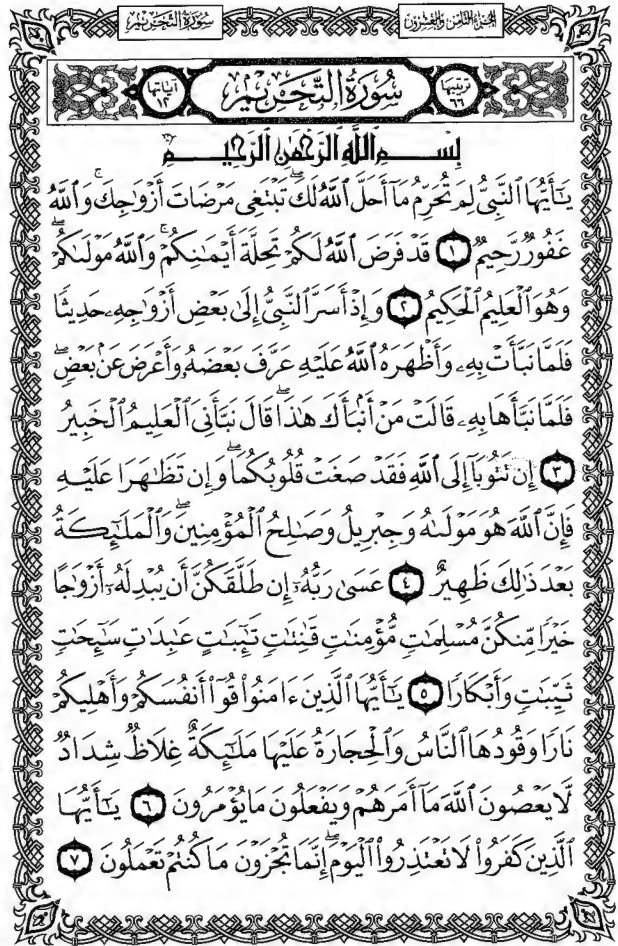 سُورَةُ التَّحْرِيمِ الجُزْءُ الثَّامِنُ وَالعِشْرُونَ
ترتيبها ٦٦ سُورَةُ التَّحْرِيمِ آياتها ١٢
بِسْمِ ٱللَّهِ ٱلرَّحْمَٰنِ ٱلرَّحِيمِ
يَٰٓأَيُّهَا ٱلنَّبِىُّ لِمَ تُحَرِّمُ مَآ أَحَلَّ ٱللَّهُ لَكَ ۖ تَبْتَغِى مَرْضَاتَ أَزْوَٰجِكَ ۚ وَٱللَّهُ
غَفُورٌ رَّحِيمٌ ١ قَدْ فَرَضَ ٱللَّهُ لَكُمْ تَحِلَّةَ أَيْمَٰنِكُمْ ۚ وَٱللَّهُ مَوْلَىٰكُمْ ۖ
وَهُوَ ٱلْعَلِيمُ ٱلْحَكِيمُ ٢ وَإِذْ أَسَرَّ ٱلنَّبِىُّ إِلَىٰ بَعْضِ أَزْوَٰجِهِۦ حَدِيثًا
فَلَمَّا نَبَّأَتْ بِهِۦ وَأَظْهَرَهُ ٱللَّهُ عَلَيْهِ عَرَّفَ بَعْضَهُۥ وَأَعْرَضَ عَنۢ بَعْضٍ ۖ
فَلَمَّا نَبَّأَهَا بِهِۦ قَالَتْ مَنْ أَنۢبَأَكَ هَٰذَا ۖ قَالَ نَبَّأَنِىَ ٱلْعَلِيمُ ٱلْخَبِيرُ
٣ إِن تَتُوبَآ إِلَى ٱللَّهِ فَقَدْ صَغَتْ قُلُوبُكُمَا ۖ وَإِن تَظَٰهَرَا عَلَيْهِ
فَإِنَّ ٱللَّهَ هُوَ مَوْلَىٰهُ وَجِبْرِيلُ وَصَٰلِحُ ٱلْمُؤْمِنِينَ ۖ وَٱلْمَلَٰٓئِكَةُ
بَعْدَ ذَٰلِكَ ظَهِيرٌ ٤ عَسَىٰ رَبُّهُۥٓ إِن طَلَّقَكُنَّ أَن يُبْدِلَهُۥٓ أَزْوَٰجًا
خَيْرًا مِّنكُنَّ مُسْلِمَٰتٍ مُّؤْمِنَٰتٍ قَٰنِتَٰتٍ تَٰٓئِبَٰتٍ عَٰبِدَٰتٍ سَٰٓئِحَٰتٍ
ثَيِّبَٰتٍ وَأَبْكَارًا ٥ يَٰٓأَيُّهَا ٱلَّذِينَ ءَامَنُوا۟ قُوٓا۟ أَنفُسَكُمْ وَأَهْلِيكُمْ
نَارًا وَقُودُهَا ٱلنَّاسُ وَٱلْحِجَارَةُ عَلَيْهَا مَلَٰٓئِكَةٌ غِلَاظٌ شِدَادٌ
لَّا يَعْصُونَ ٱللَّهَ مَآ أَمَرَهُمْ وَيَفْعَلُونَ مَا يُؤْمَرُونَ ٦ يَٰٓأَيُّهَا
ٱلَّذِينَ كَفَرُوا۟ لَا تَعْتَذِرُوا۟ ٱلْيَوْمَ ۖ إِنَّمَا تُجْزَوْنَ مَا كُنتُمْ تَعْمَلُونَ ٧